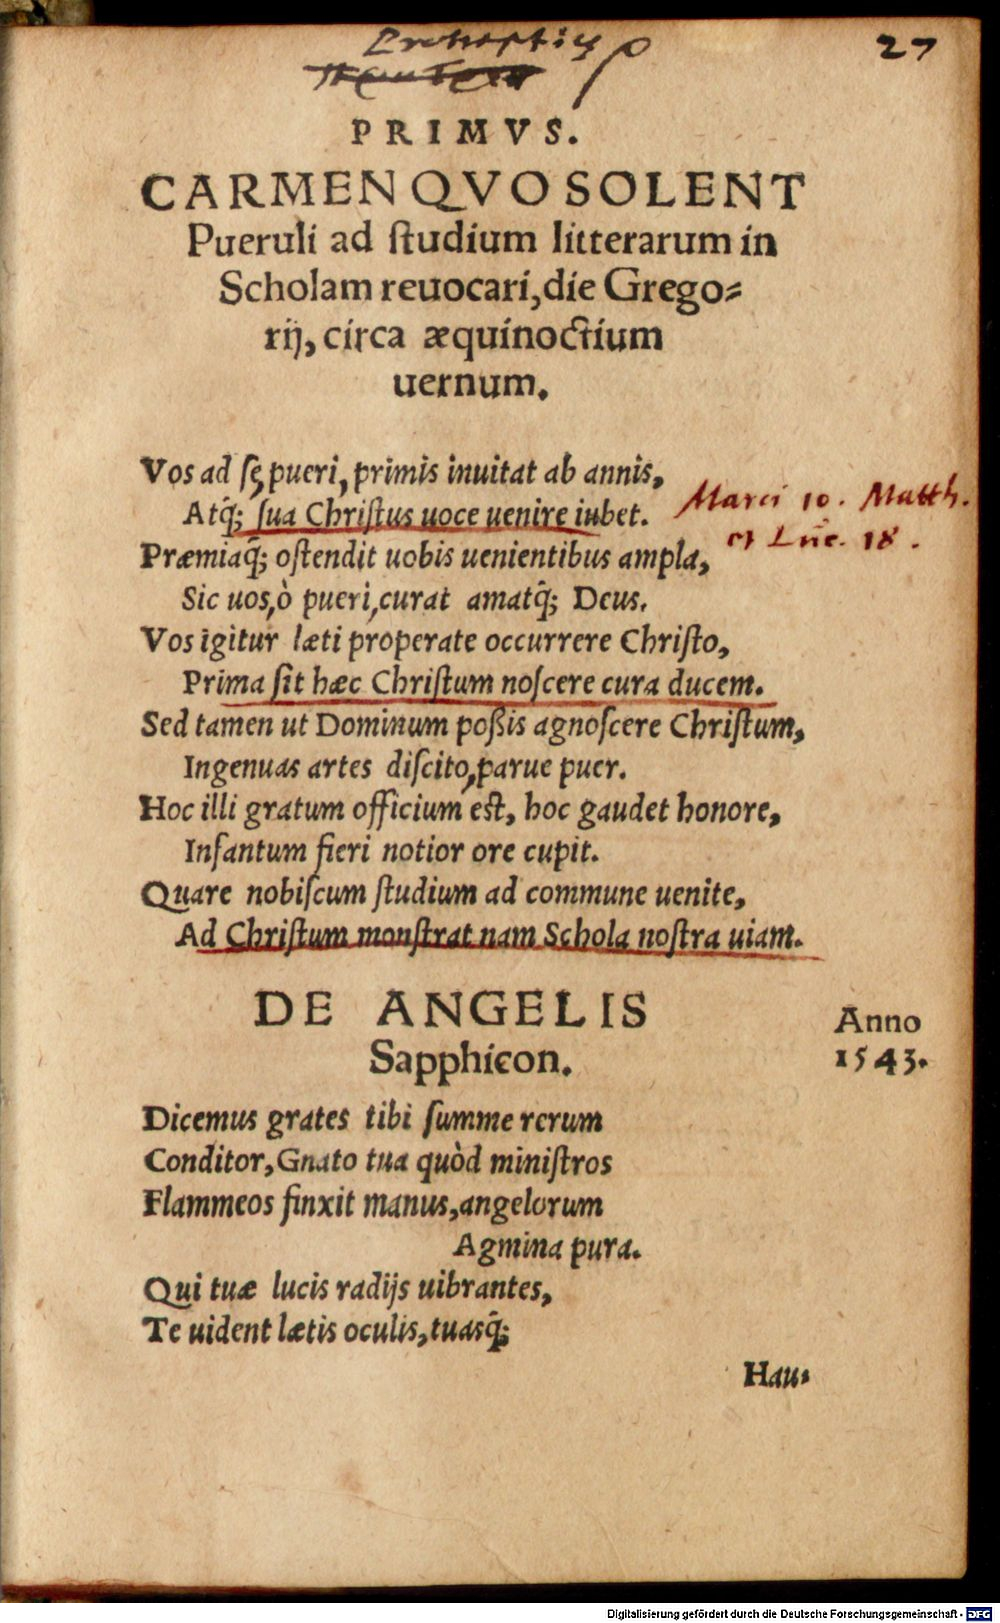 27
PRIMVS.
CARMEN QVO SOLENT
Pueruli ad ſtudium litterarum in
Scholam reuocari, die Grego⸗
rij, circa æquinoctium
uernum.
Vos ad ſe, pueri, primis inuitat ab annis,
Atq́; ſua Chriſtus uoce uenire iubet.
Marci 10. Matth.
et Luc. 18.
Præmiaq́; oſtendit uobis uenientibus ampla,
Sic uos, ò pueri, curat amatq́; Deus.
Vos igitur læti properate occurrere Chriſto,
Prima ſit hæc Chriſtum noſcere cura ducem.
Sed tamen ut Dominum poßis agnoſcere Chriſtum,
Ingenuas artes diſcito, parue puer.
Hoc illi gratum officium eſt, hoc gaudet honore,
Infantum fieri notior ore cupit.
Quare nobiſcum ſtudium ad commune uenite,
Ad Chriſtum monſtrat nam Schola noſtra uiam.
DE ANGELIS
Sapphicon.
Anno
1543.
Dicemus grates tibi ſumme rerum
Conditor, Gnato tua quòd miniſtros
Flammeos finxit manus, angelorum
Agmina pura.
Qui tuæ lucis radijs uibrantes,
Te uident lætis oculis, tuasq́;
Hau⸗
Digitalisierung gefördert durch die Deutsche Forschungsgemeinschaft - DFG